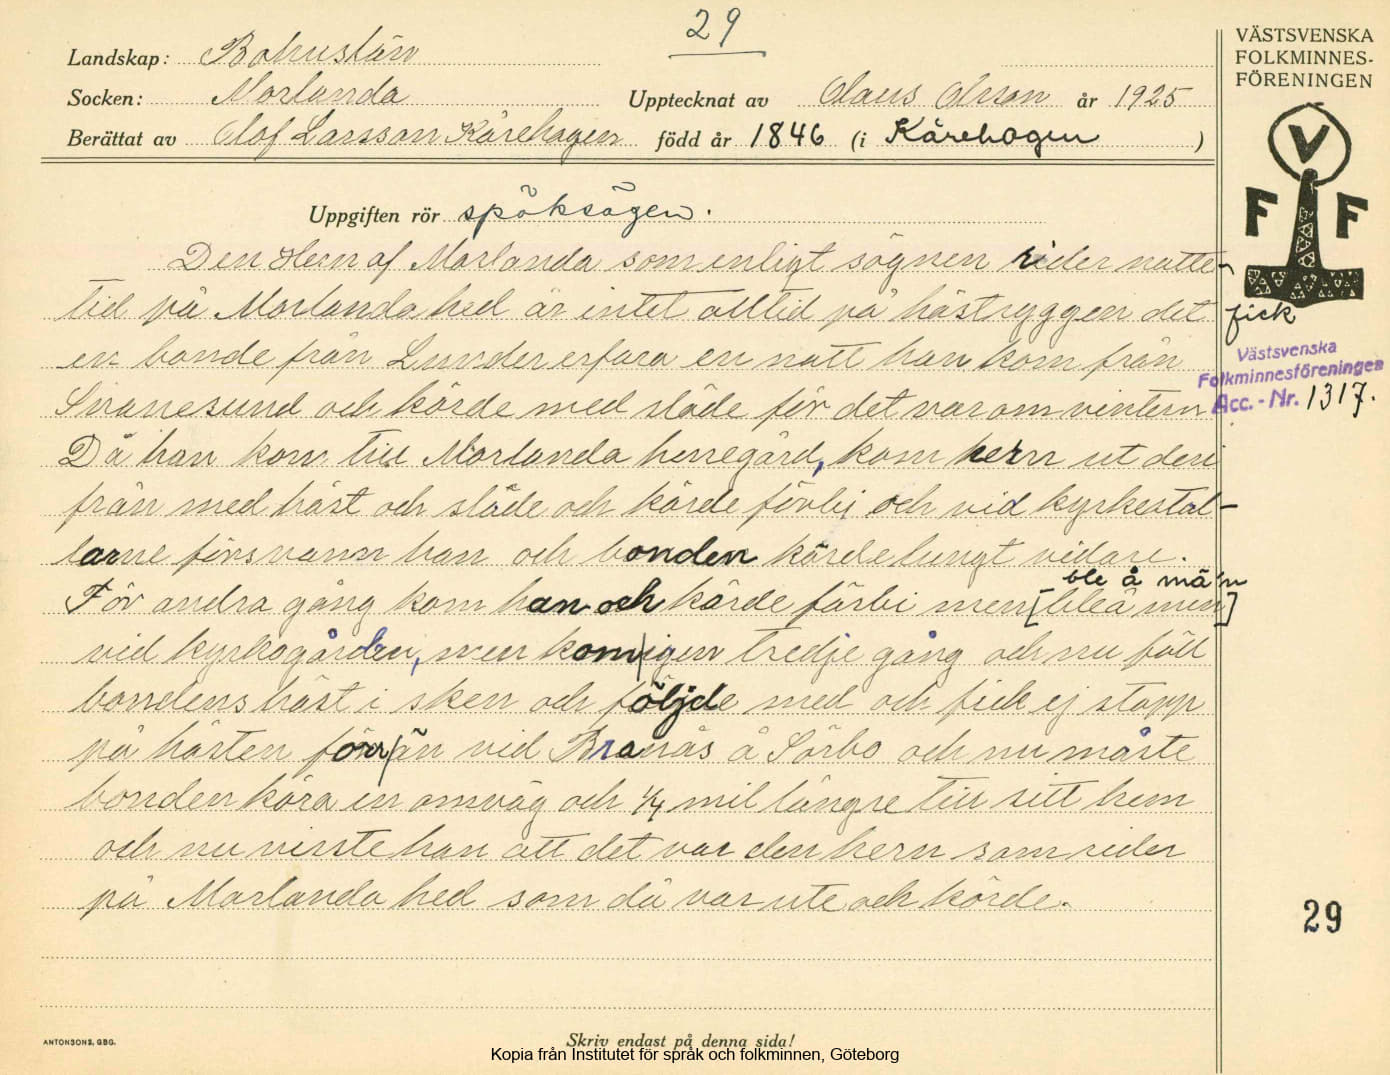 29
VÄSTSVENSKA
FOLKMINNES-
FÖRENINGEN
Landskap: Bohuslän
Socken: Morlanda
Upptecknat av Claus Olsson år 1925
Berättat av Olof Larsson Kårehogen född år 1846 (i Kårehogen)
V
F F
Uppgiften rör spöksägen.
Den Hern af Morlanda som enligt sägnen rider natte-
tid på Morlanda hed är intet alltid på hästryggen det fick
en bonde från Lunder erfara en natt han kom från
Svanesund och körde med släde för det var om vintern
Då han kom till Morlanda herregård, kom hern ut deri
från med häst och släde och körde förbi och vid kyrkestal-
larne försvann han och bonden körde lungt vidare.
ble å mä'n
För andra gång kom han och körde förbi men [bleå men]
vid kyrkogården, men kom igen tredje gång och nu föll
bondens häst i sken och följde med och fick ej stopp
på hästen förr än vid Branås å Sörbo och nu måste
bonden köra en omväg och 1/4 mil längre till sitt hem
och nu visste han att det var den hern som rider
på Morlanda hed som då var ute och körde.
Västsvenska
Folkminnesföreningen
Acc.-Nr. 1317.
29
ANTONSONS, GBG.
Skriv endast på denna sida!
Kopia från Institutet för språk och folkminnen, Göteborg